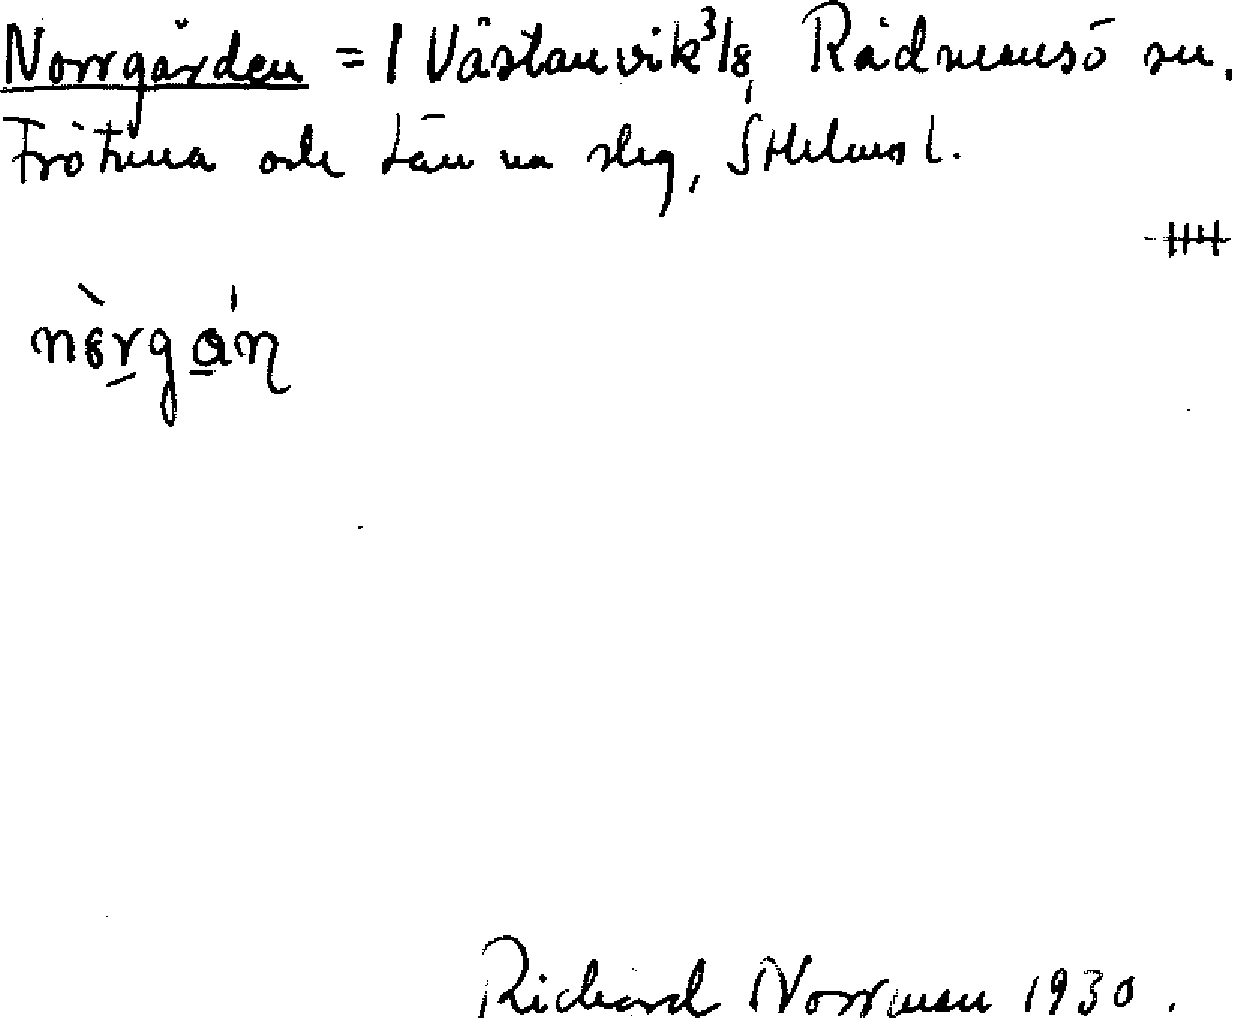 Norrgården = 1 Västanvik 3/8, Rådmansö sn.
Frötuna och Länna slg, Sthlms l.
Richard Norrman 1930.